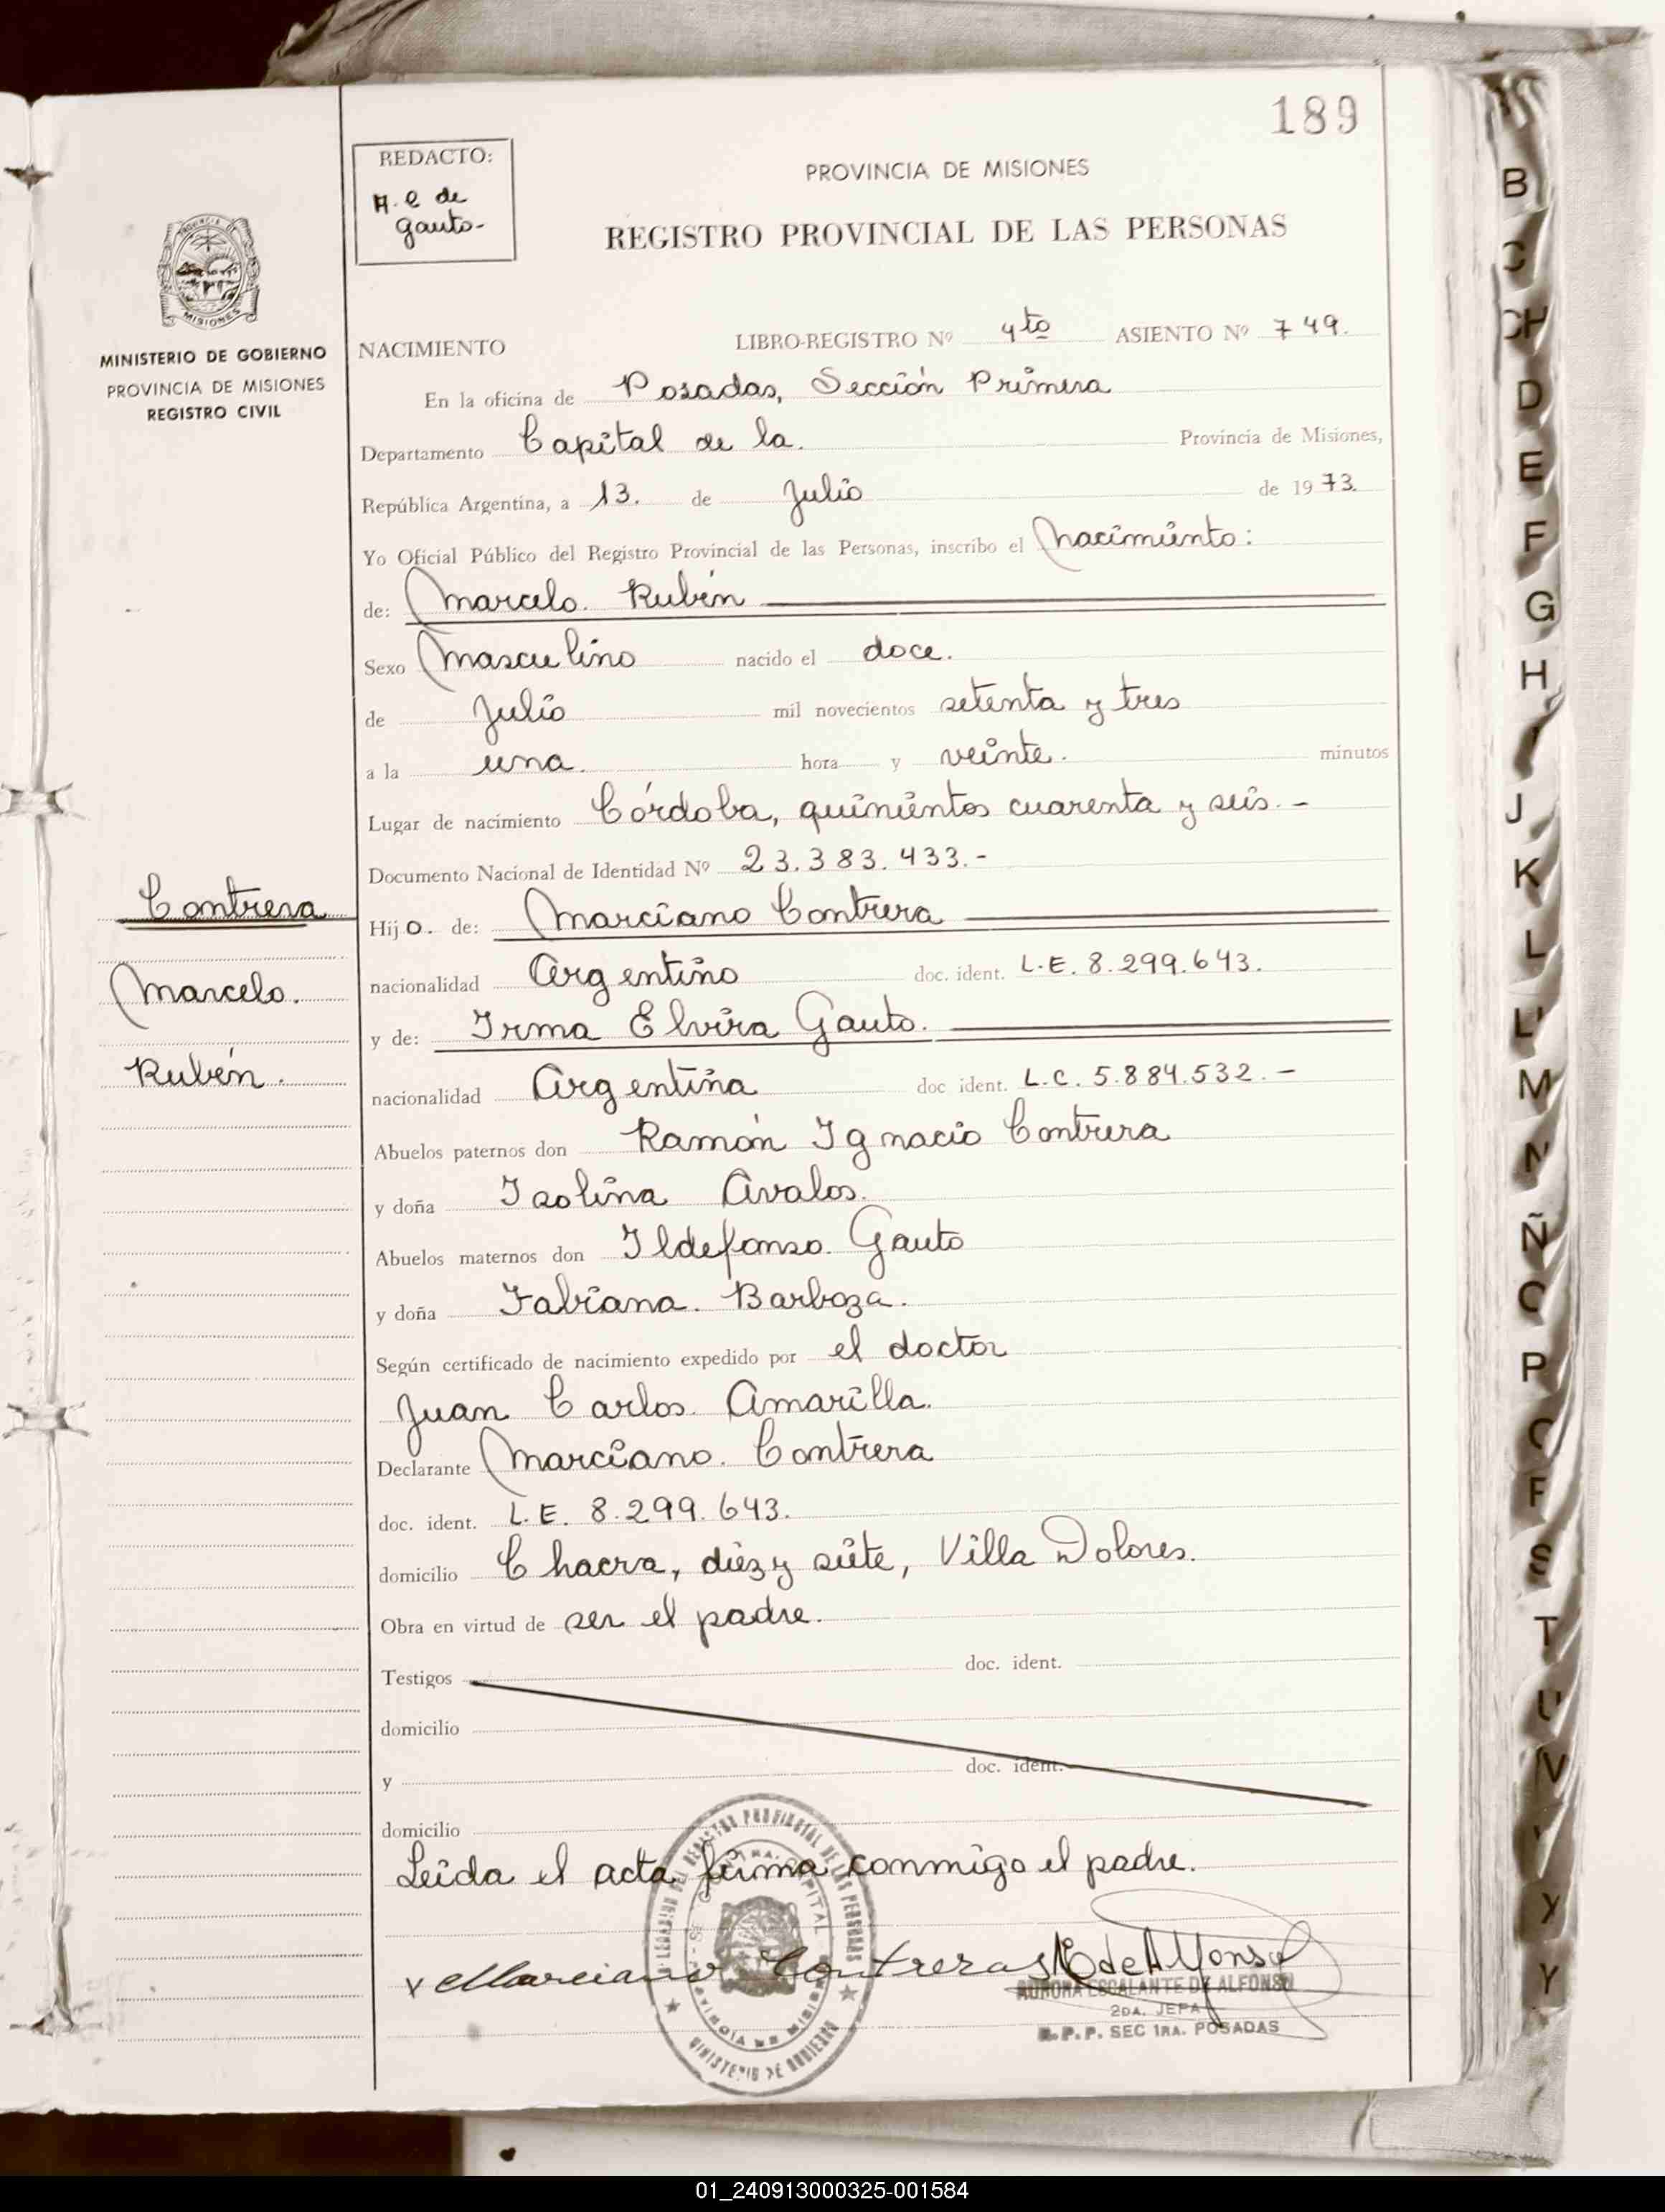 189
REDACTO:
A. e de
gauto-
PROVINCIA DE MISIONES
REGISTRO PROVINCIAL DE LAS PERSONAS
MISIONES
MINISTERIO DE GOBIERNO
PROVINCIA DE MISIONES
REGISTRO CIVIL
NACIMIENTO LIBRO-REGISTRO Nº 4to ASIENTO Nº 749.
En la oficina de Posadas, Sección Primera
Departamento Capital de la. Provincia de Misiones,
República Argentina, a 13. de Julio de 1973.
Yo Oficial Público del Registro Provincial de las Personas, inscribo el Nacimiento:
de: Marcelo. Rubén
Sexo Masculino nacido el doce.
de Julio mil novecientos setenta y tres
a la una. hora y veinte. minutos
Lugar de nacimiento Córdoba, quinientos cuarenta y seis.-
Documento Nacional de Identidad Nº 23.383.433.-
Contrera
Hijo. de: Marciano Contrera
nacionalidad Argentino doc. ident. L.E. 8.299.643.
Marcelo.
y de: Irma Elvira Gauto.
Rubén.
nacionalidad Argentina doc ident. L.C. 5.884.532.-
Abuelos paternos don Ramón Ignacio Contrera
y doña Isolina Avalos.
Abuelos maternos don Ildefonso. Gauto
y doña Fabiana. Barboza.
Según certificado de nacimiento expedido por el doctor
Juan Carlos. Amarilla.
Declarante Marciano. Contrera
doc. ident. L.E. 8.299.643.
domicilio Chacra, diez y siete, Villa Dolores.
Obra en virtud de ser el padre.
Testigos doc. ident.
domicilio
y doc. ident.
domicilio
Leida el acta firma conmigo el padre.
Marciano Contreras
AURORA ESCALANTE DE ALFONSO
2DA. JEFA
R.P.P. SEC 1RA. POSADAS
B
C
CH
D
E
F
G
H
I
J
K
L
LL
M
N
Ñ
O
P
Q
R
S
T
U
V
Y
Y
01_240913000325-001584